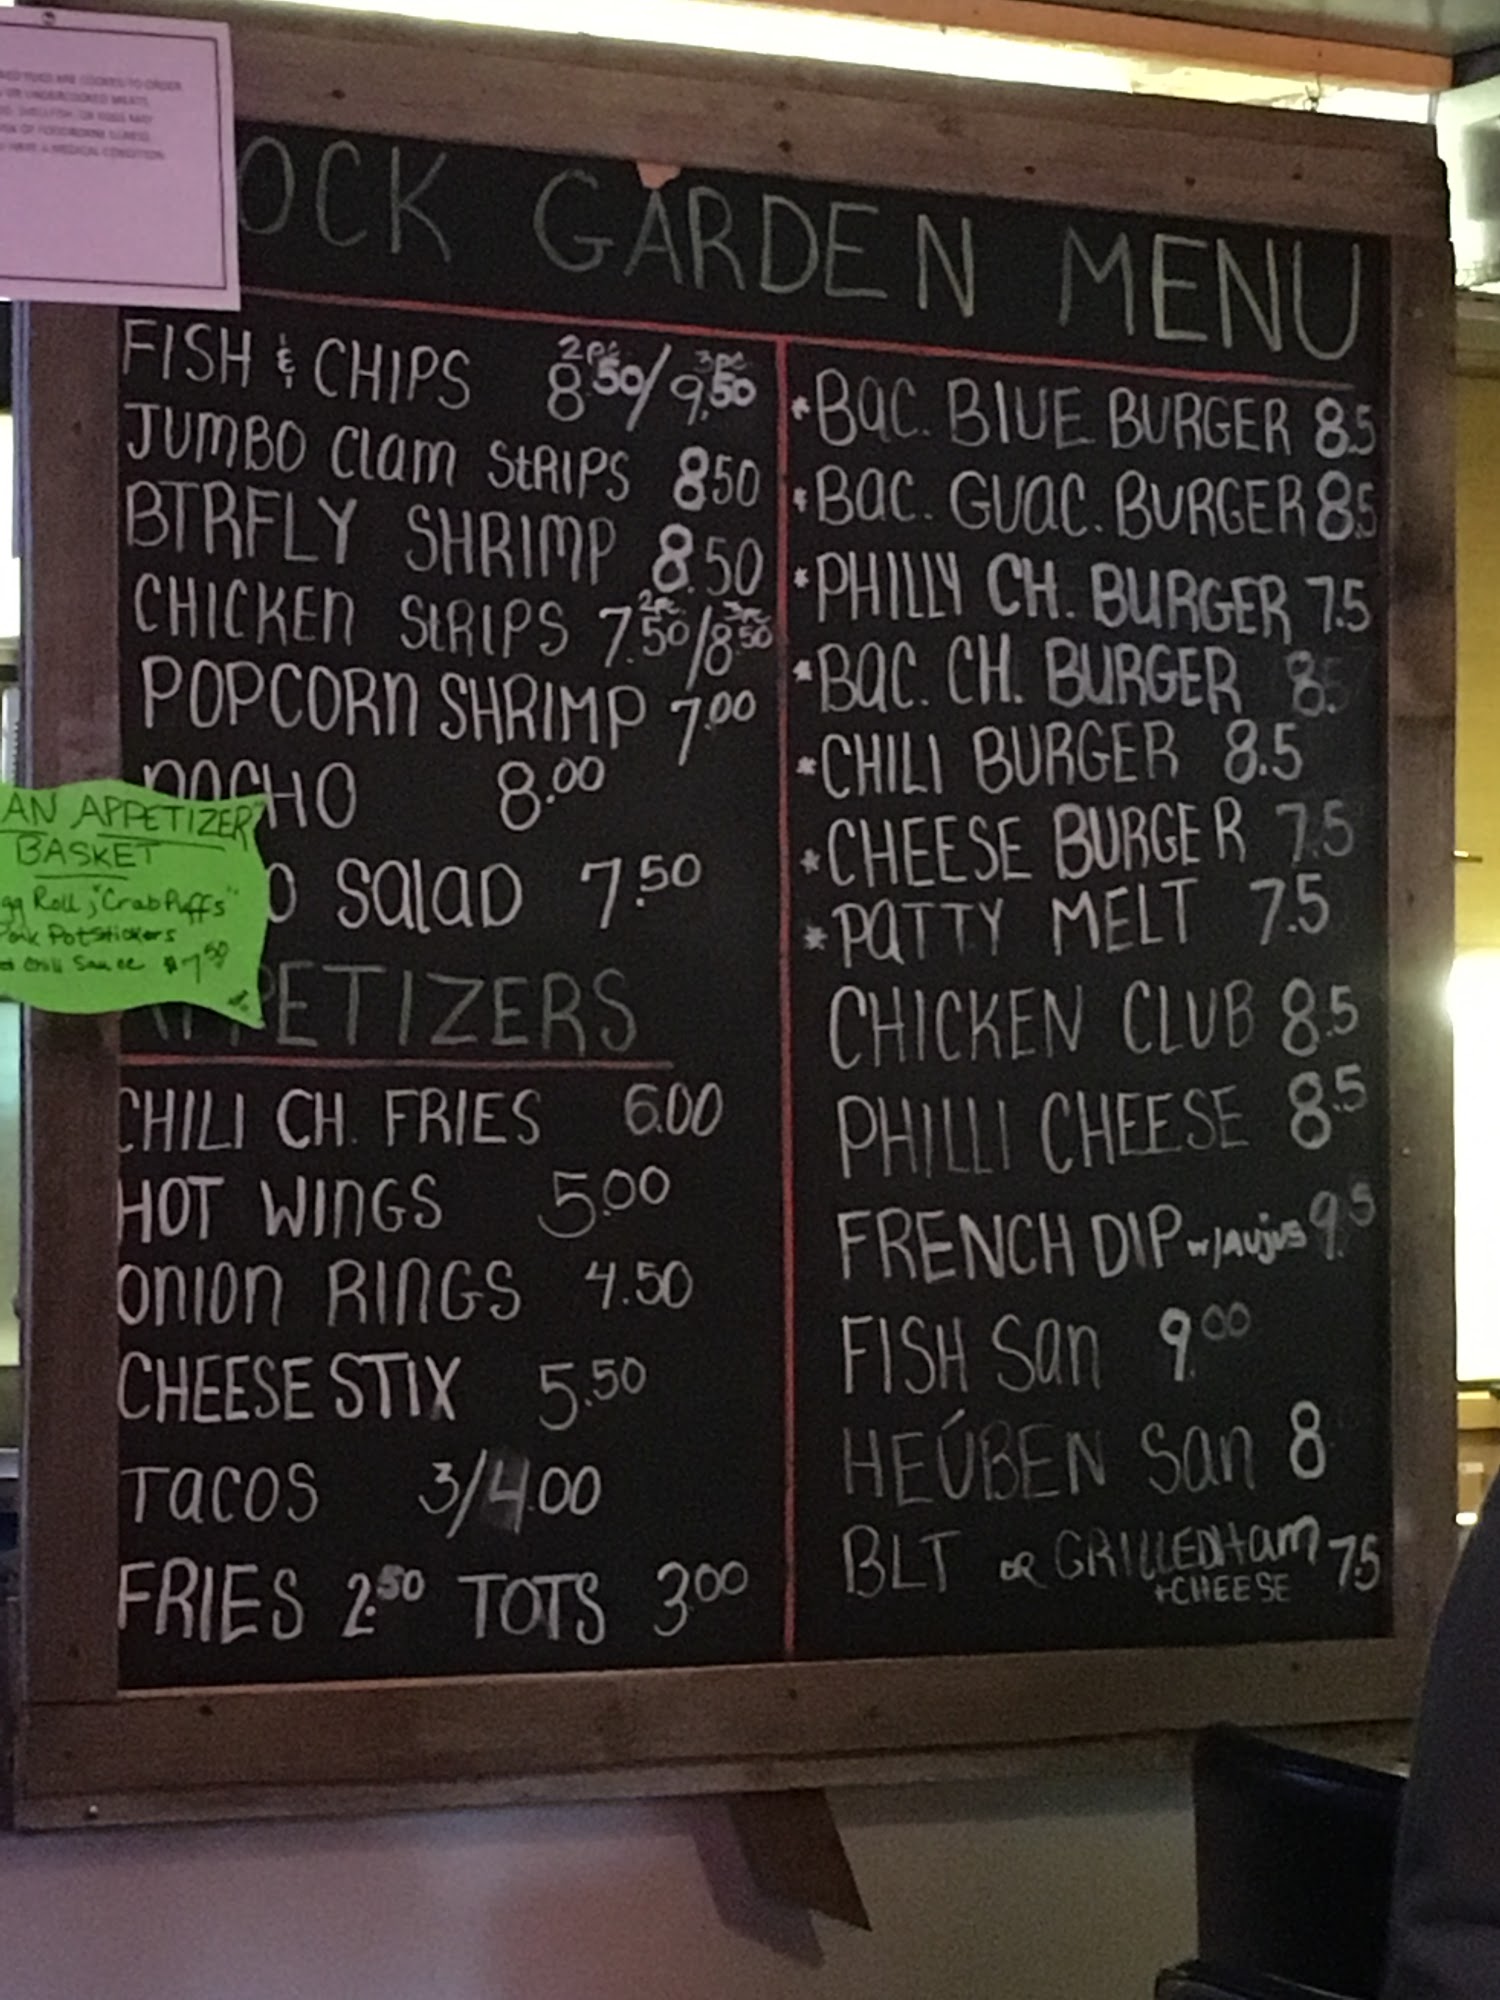 OOKED FOOD ARE COOKED TO ORDER
OR UNDERCOOKED MEATS,
SHELLFISH, OR EGGS MAY
RISK OF FOODBORNE ILLNESS
HAVE A MEDICAL CONDITION
OCK GARDEN MENU
FISH & CHIPS 2pc. 8.50/ 3pc 9.50
JUMBO Clam StRIPS 8.50
BTRFLY SHRIMP 8.50
CHICKEN StRIPS 2pc. 7.50/ 3pc 8.50
POPCORN SHRIMP 7.00
NACHO 8.00
O SALAD 7.50
AN APPETIZER
BASKET
gg Roll, "Crab Puffs"
Pork Potstickers
Chili Sauce $7.50
APPETIZERS
CHILI CH. FRIES 6.00
HOT WINGS 5.00
ONION RINGS 4.50
CHEESE STIX 5.50
TACOS 3/4.00
FRIES 2.50 TOTS 3.00
*BAC. BLUE BURGER 8.5
*BAC. GUAC. BURGER 8.5
*PHILLY CH. BURGER 7.5
*BAC. CH. BURGER 8.5
*CHILI BURGER 8.5
*CHEESE BURGER 7.5
*PATTY MELT 7.5
CHICKEN CLUB 8.5
PHILLI CHEESE 8.5
FRENCH DIP w/AUjus 9.5
FISH San 9.00
HEÚBEN San 8
BLT OR GRILLED Ham 7.5
+CHEESE